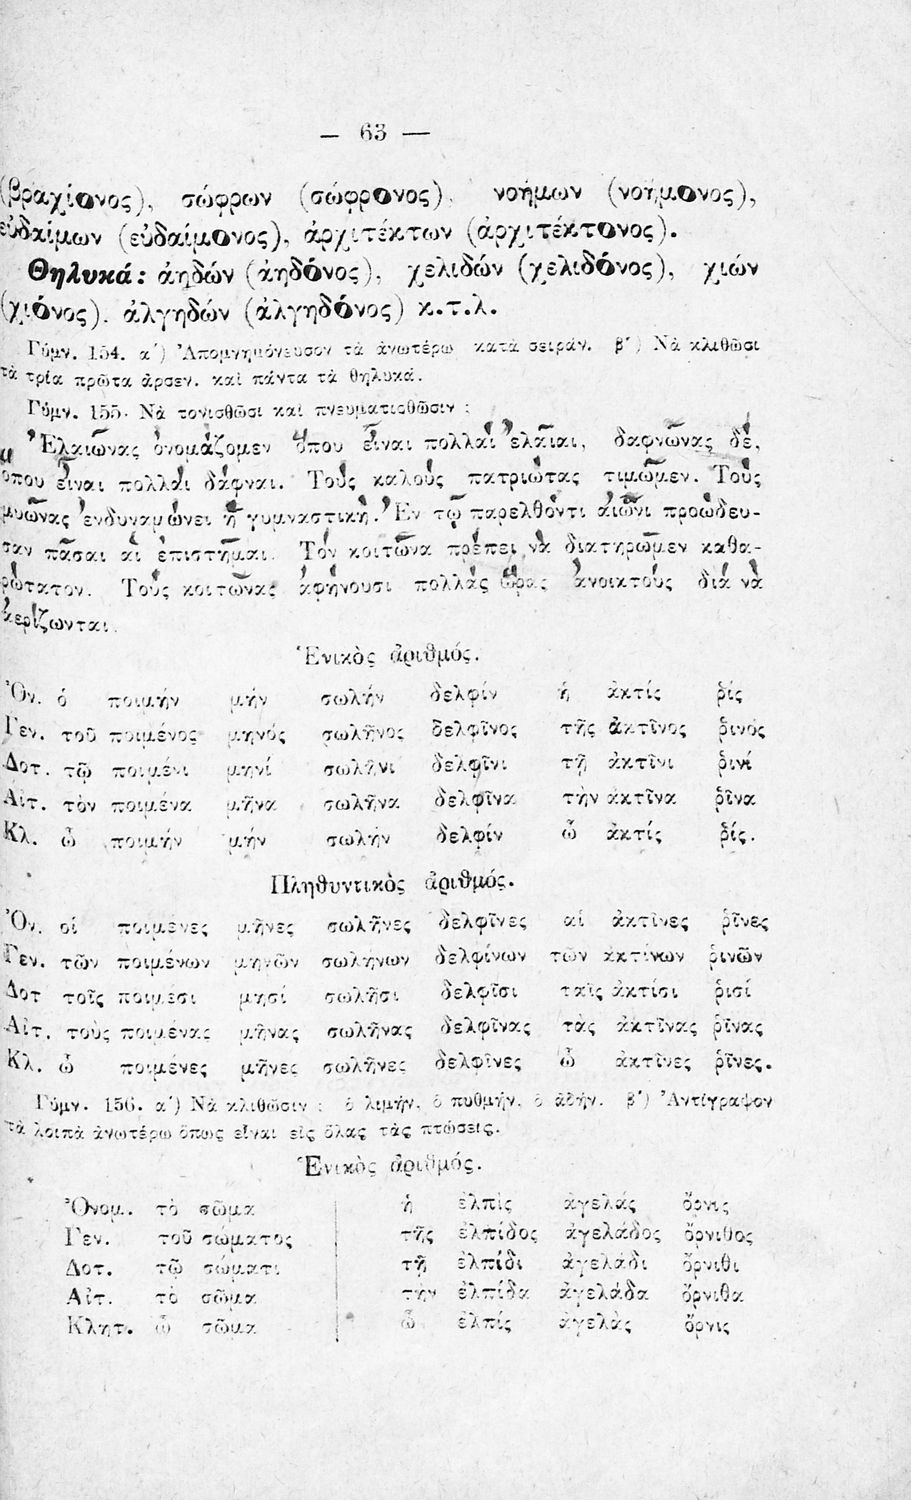 — 63 —
(βραχίονος), σώφρων (σώφρονος), νοήμων (νοήμονος),
εὐδαίμων (εὐδαίμονος), ἀρχιτέκτων (ἀρχιτέκτονος).
Θηλυκά: ἀηδών (ἀηδόνος), χελιδών (χελιδόνος), χιών
(χιόνος). ἀλγηδών (ἀλγηδόνος) κ.τ.λ.
Γύμν. 154. α΄) Ἀπομνημόνευσον τὰ ἀνωτέρω κατὰ σειράν. β΄) Νὰ κλιθῶσι
τὰ τρία πρῶτα ἀρσεν. καὶ πάντα τὰ θηλυκά.
Γύμν. 155. Νὰ τονισθῶσι καὶ πνευματισθῶσιν :
Ἐλαιῶνας ὀνομάζομεν ὅπου εἶναι πολλαί ἐλαῖαι, δαφνῶνας δέ,
ὁπου εἶναι πολλαί δάφναι. Τούς καλούς πατριώτας τιμῶμεν. Τούς
μυῶνας ἐνδυναμώνει ἡ γυμναστική. Ἐν τῷ παρελθόντι αἰῶνι προώδευ-
σαν πᾶσαι αἱ ἐπιστῆμαι. Τόν κοιτῶνα πρέπει νὰ διατηρῶμεν καθα-
ρώτατον. Τούς κοιτῶνας ἀφήνουσι πολλάς ὥρας ἀνοικτούς διά νὰ
ἀερίζωνται.
Ἑνικὸς ἀριθμός.
Ὀν. ὁ ποιμήν μήν σωλήν δελφίν ἡ ἀκτίς ῥίς
Γεν. τοῦ ποιμένος μηνός σωλῆνος δελφῖνος τῆς ἀκτῖνος ῥινός
Δοτ. τῷ ποιμένι μηνί σωλῆνι δελφῖνι τῇ ἀκτῖνι ῥινί
Αἰτ. τὸν ποιμένα μῆνα σωλῆνα δελφῖνα τὴν ἀκτῖνα ῥῖνα
Κλ. ὦ ποιμήν μήν σωλήν δελφίν ὦ ἀκτίς ῥίς.
Πληθυντικὸς ἀριθμός.
Ὀν. οἱ ποιμένες μῆνες σωλῆνες δελφῖνες αἱ ἀκτῖνες ῥῖνες
Γεν. τῶν ποιμένων μηνῶν σωλήνων δελφίνων τῶν ἀκτίνων ῥινῶν
Δοτ τοῖς ποιμέσι μησί σωλῆσι δελφῖσι ταῖς ἀκτίσι ῥισί
Αἰτ. τοὺς ποιμένας μῆνας σωλῆνας δελφῖνας τὰς ἀκτῖνας ῥῖνας
Κλ. ὦ ποιμένες μῆνες σωλῆνες δελφῖνες ὦ ἀκτῖνες ῥῖνες.
Γύμν. 156. α΄) Νὰ κλιθῶσιν : ὁ λιμήν, ὁ πυθμήν, ὁ ἀδήν. β΄) Ἀντίγραψον
τὰ λοιπὰ ἀνωτέρω ὅπως εἶναι εἰς ὅλας τὰς πτώσεις.
Ἑνικὸς ἀριθμός.
Ὀνομ. τὸ σῶμα ἡ ἐλπὶς ἀγελάς ὄρνις
Γεν. τοῦ σώματος τῆς ἐλπίδος ἀγελάδος ὄρνιθος
Δοτ. τῷ σώματι τῇ ἐλπίδι ἀγελάδι ὄρνιθι
Αἰτ. τὸ σῶμα τὴν ἐλπίδα ἀγελάδα ὄρνιθα
Κλητ. ὦ σῶμα ὦ ἐλπίς ἀγελὰς ὄρνις